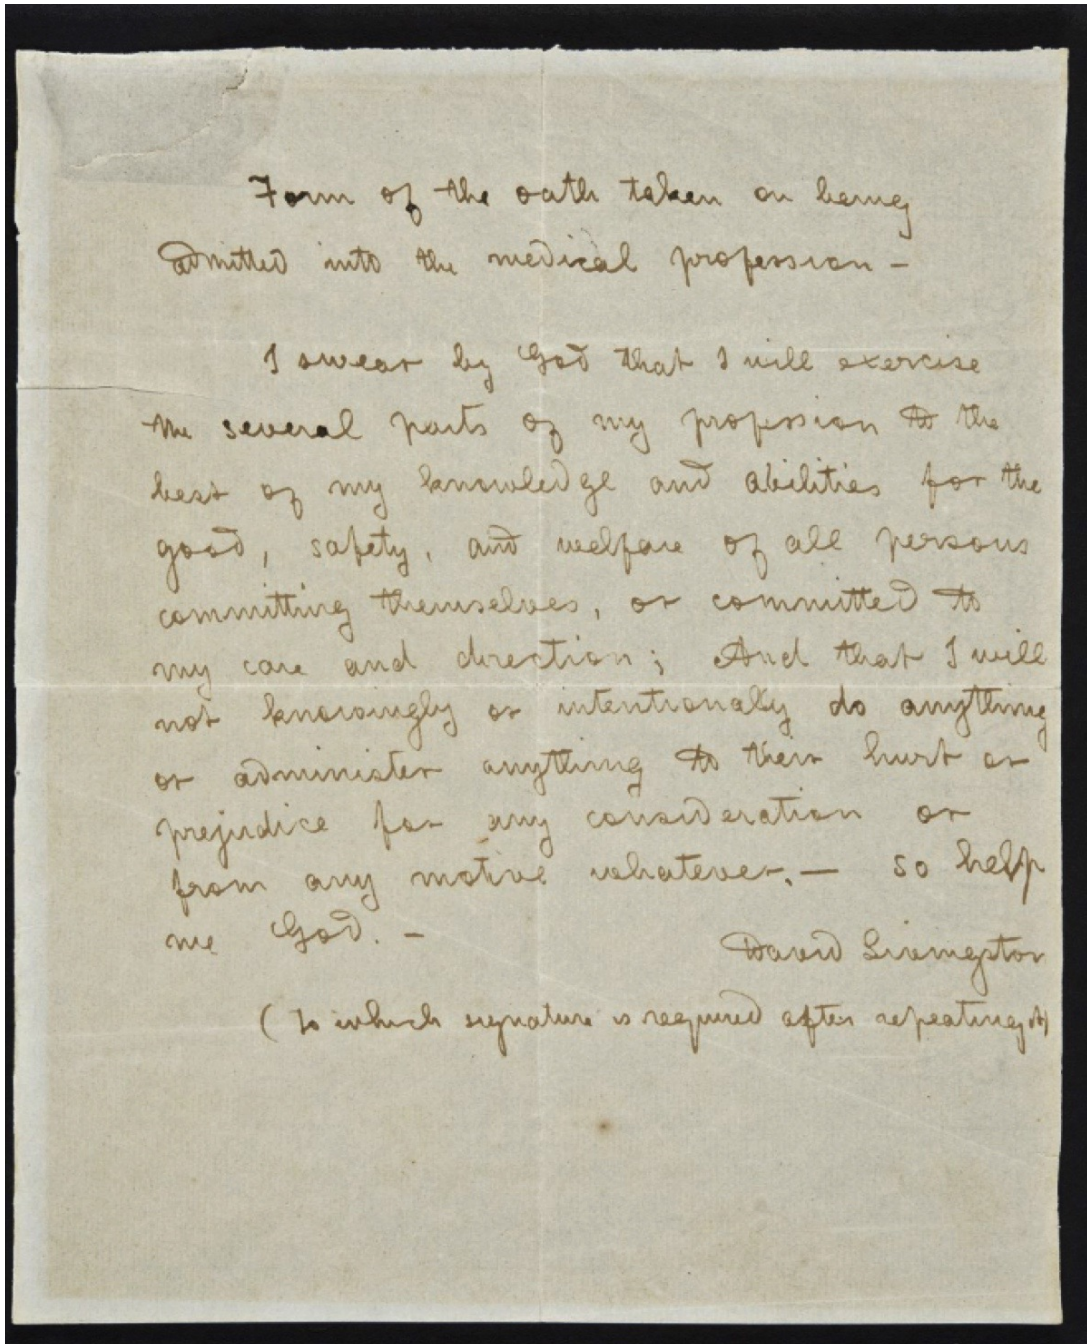 Form of the oath taken on being
admitted into the medical profession -
I swear by God that I will exercise
the several parts of my profession to the
best of my knowledge and abilities for the
good, safety, and welfare of all persons
committing themselves, or committed to
my care and direction; And that I will
not knowingly or intentionally do anything
or administer anything to their hurt or
prejudice for any consideration or
from any motive whatever. — So help
me God. -
David Livingston
(To which signature is required after repeating it)